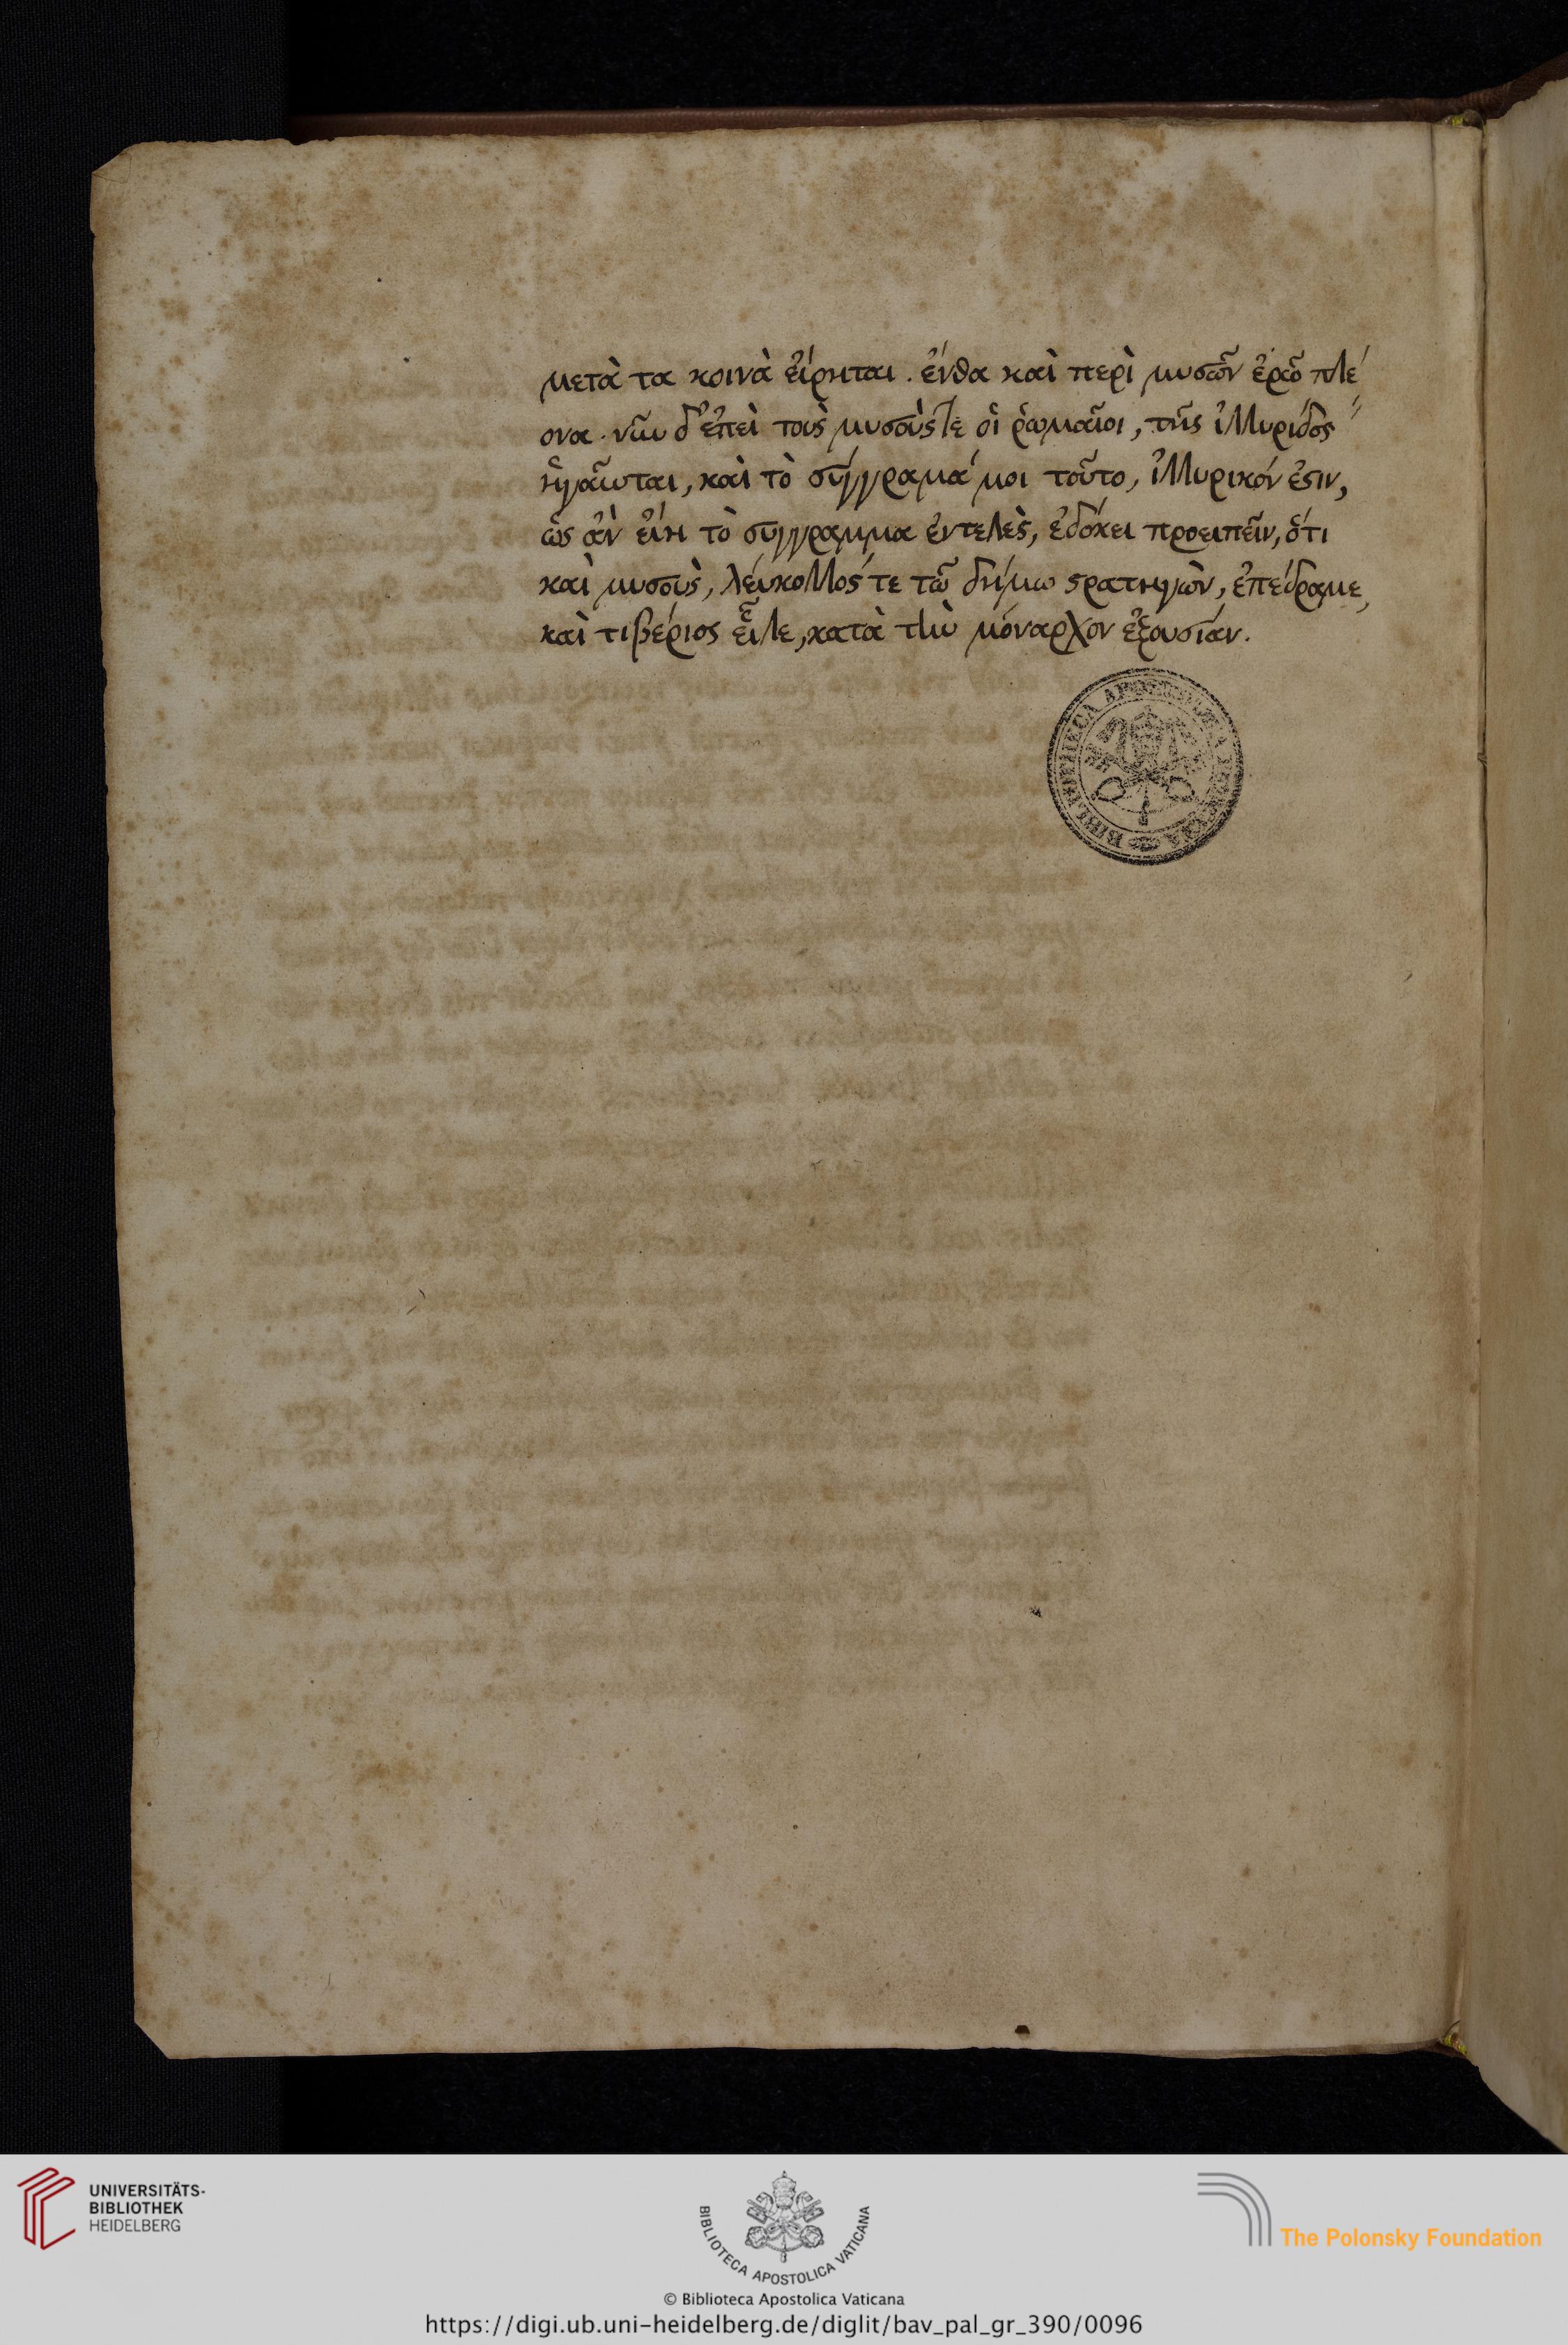 μετὰ τα κοινὰ εἴρηται. ἔνθα καὶ περὶ μυσῶν ἐρῶ πλέ
ονα. νῦν δ' ἐπεὶ τοὺς μυσούς τε οἱ ῥωμαῖοι, τῆς ἰλλυρίδος
ἡγοῦνται, καὶ τὸ σύγγραμά μοι τοῦτο, ἰλλυρικόν ἐστιν,
ὡς ἂν εἴη τὸ σύγγραμμα ἐντελὲς, ἐδόκει προειπεῖν, ὅτι
καὶ μυσοὺς, λεύκολλός τε τῶ δήμω στρατηγῶν, ἐπέδραμε,
καὶ τιβέριος εἷλε, κατὰ τὴν μόναρχον ἐξουσίαν.
UNIVERSITÄTS-
BIBLIOTHEK
HEIDELBERG
BIBLIOTECA APOSTOLICA VATICANA
The Polonsky Foundation
© Biblioteca Apostolica Vaticana
https://digi.ub.uni-heidelberg.de/diglit/bav_pal_gr_390/0096